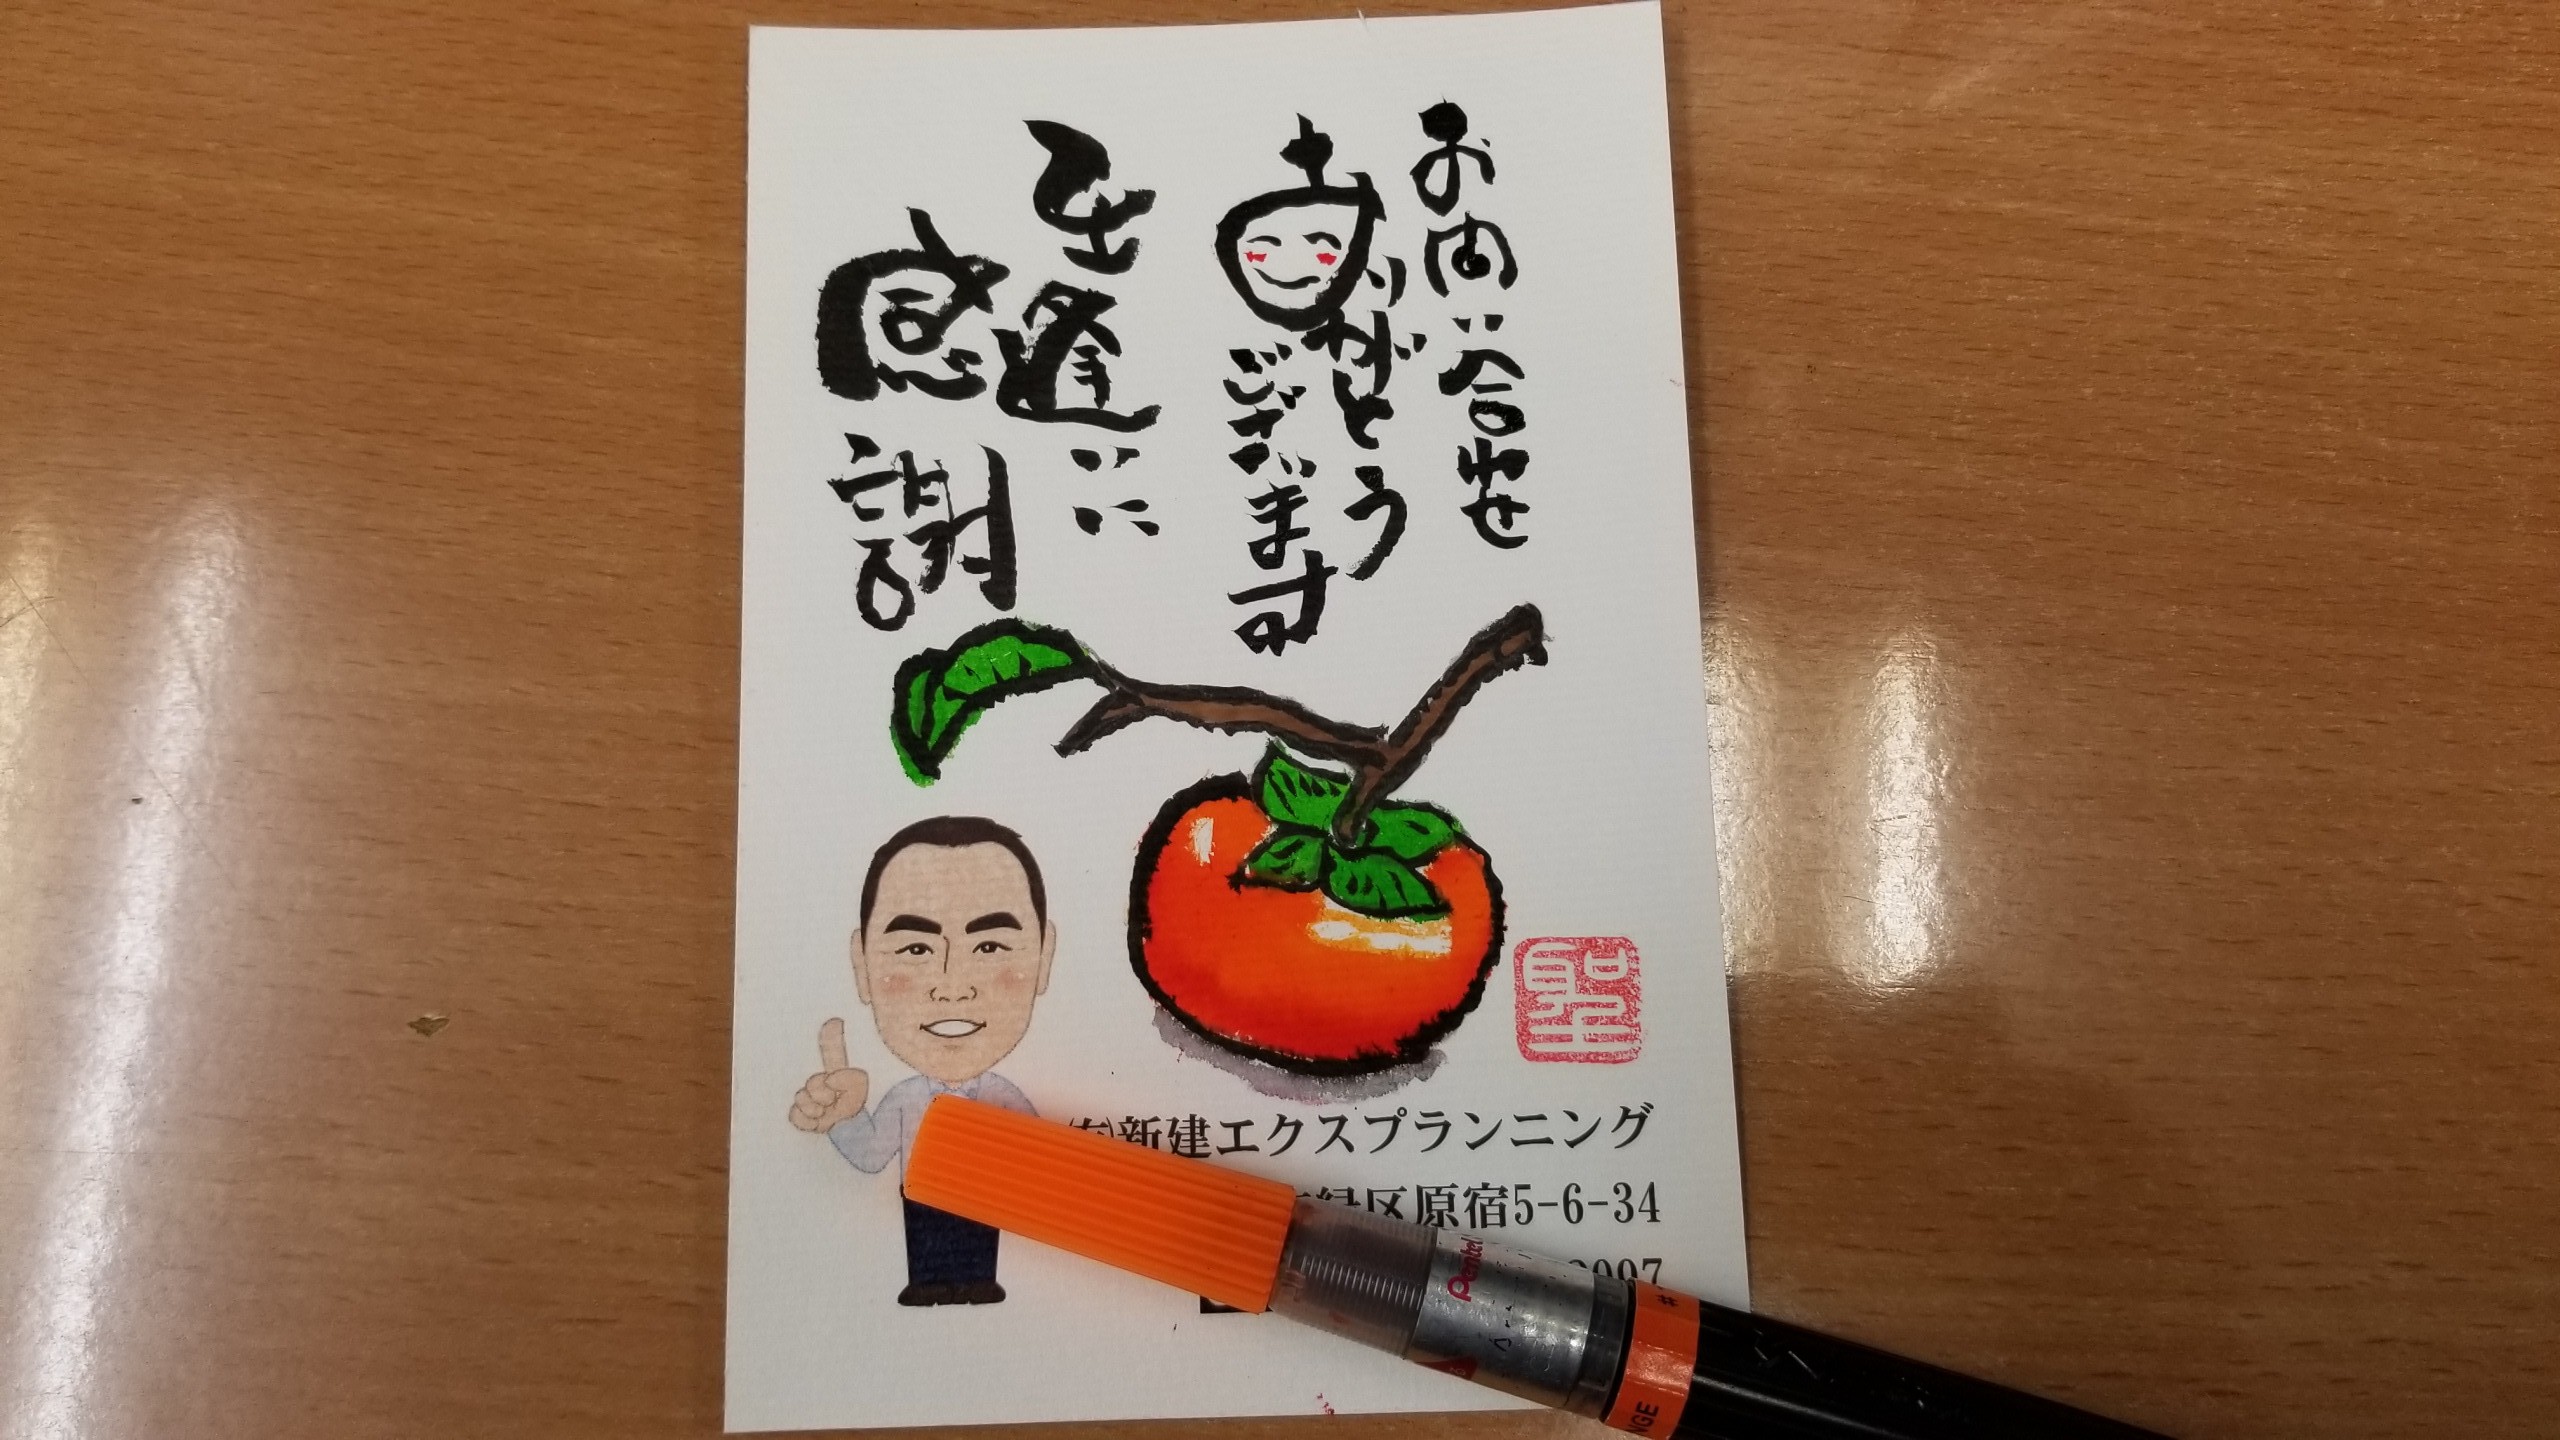 お問い合わせ
ありがとう
ございます
出逢いに
感謝
聖
㈲新建エクスプランニング
緑区原宿5-6-34
2007
Pentel